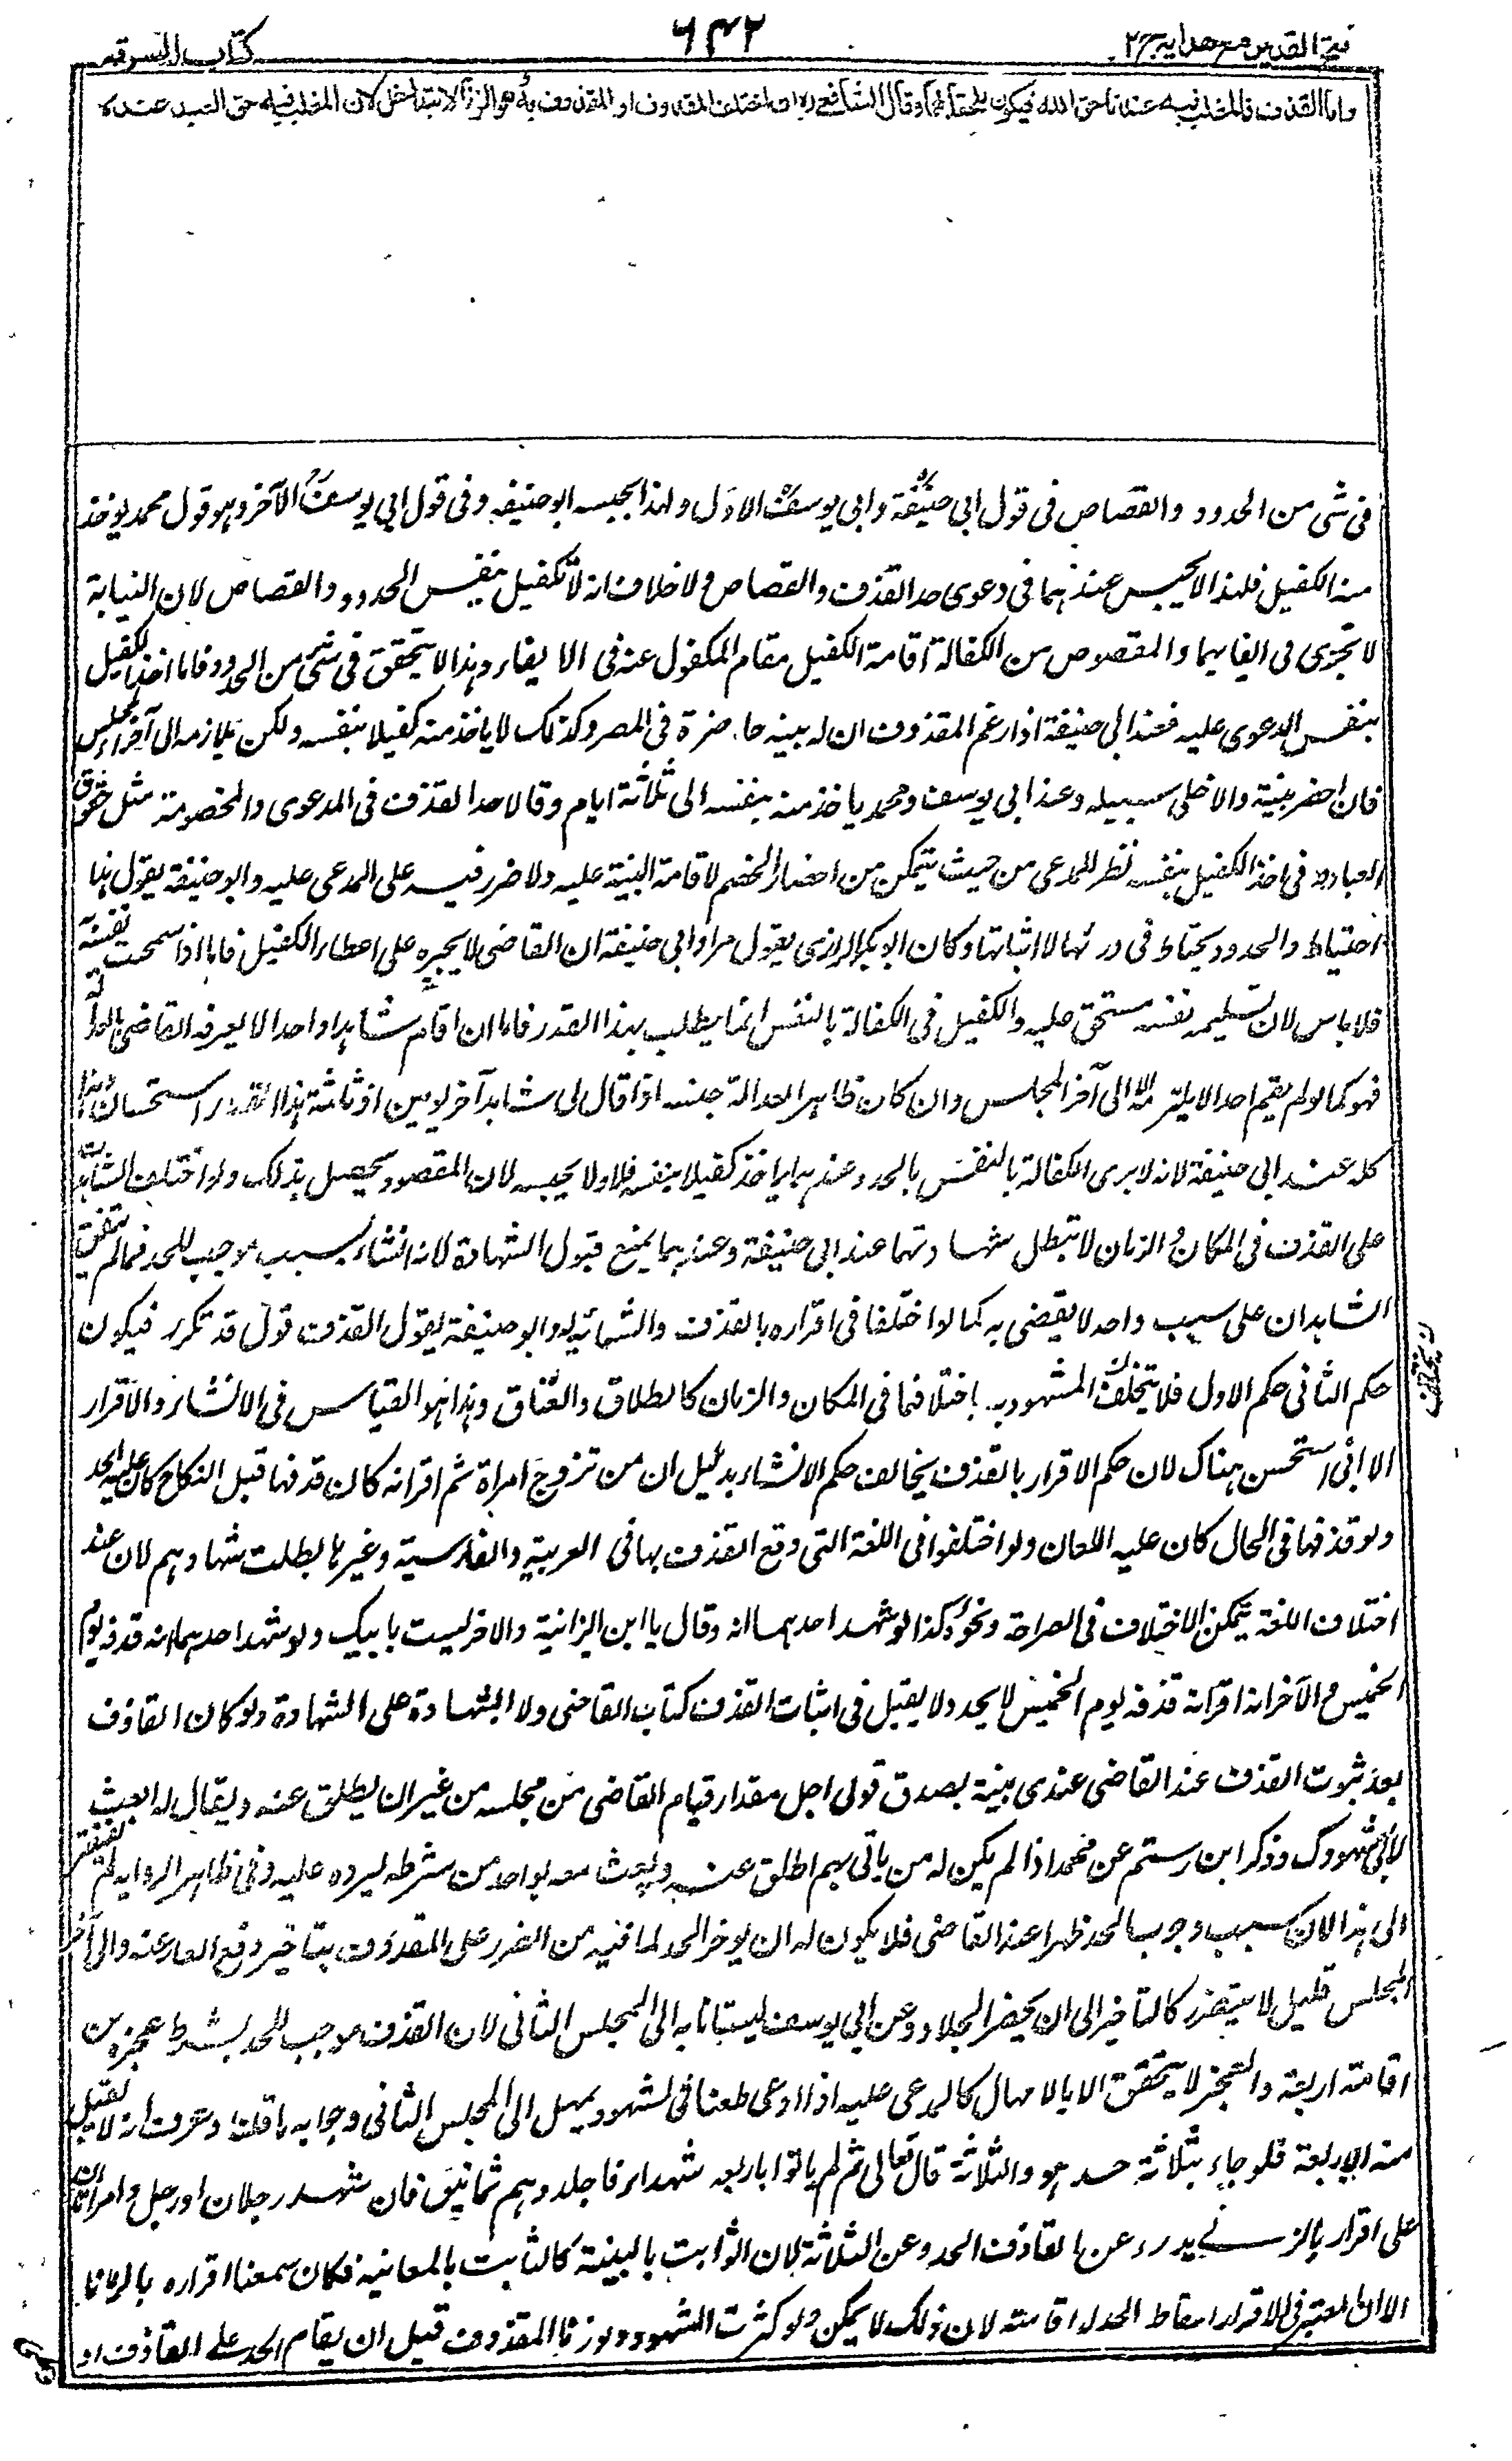 فتح القدير مع هدايه ج ٢
٦٤٢
كتاب السرقه
واما القذف فالمغلب فيه عندنا حق الله فيكون ملحقا بها وقال الشافعي ره ان اختلف المقذوف او المقذوف به وهو الزنا لا يتداخل لان المغلب فيه حق العبد عنده
فى شئ من الحدود والقصاص فى قول ابى حنيفة وابى يوسف الاول ولهذا يحبسه ابو حنيفه وفى قول ابى يوسف الآخر وهو قول محمد يوخذ
منه الكفيل فلهذا لا يحبس عندهما فى دعوى حد القذف والقصاص ولا خلاف انه لا تكفيل بنفس الحدود والقصاص لان النيابة
لا تجزى فى ايفائهما والمقصود من الكفالة اقامة الكفيل مقام المكفول عنه فى الايفاء وهذا لا يتحقق فى شئ من الحدود فاما اخذ الكفيل
بنفس المدعوى عليه فعند ابى حنيفة اذا زعم المقذوف ان له بينه حاضرة فى المصر وكذلك لا ياخذ منه كفيلا بنفسه ولكن يلازمه الى آخر المجلس
فان احضر بينة والا خلى سبيله وعند ابى يوسف ومحمد ياخذ منه بنفسه الى ثلاثة ايام وقالا حد القذف فى الدعوى والخصومة مثل حقوق
العباد وفى اخذ الكفيل بنفسه نظر للمدعى من حيث يتمكن من احضار الخصم لاقامة البينة عليه ولا ضرر فيه على المدعى عليه وابو حنيفة يقول هذا
احتياط والحدود يحتاط فى درئها لا اثباتها وكان ابو بكر الرازى يقول مراد ابى حنيفة ان القاضى لا يجبره على اعطاء الكفيل فاما اذا سمحت نفسه به
فلا باس لان تسليمه نفسه مستحق عليه والكفيل فى الكفالة بالنفس انما يطلب بهذا القدر فاما ان اقام شاهدا واحدا لا يعرفه القاضى بالعدالة
فهو كما لو لم يقم احدا لا يلتزمه الا الى آخر المجلس وان كان ظاهر العدالة حبسه اذا قال لى شاهد آخر يومين او ثلاثة هذا القدر استحسان وهذا
كله عند ابى حنيفة لانه لا يرى الكفالة بالنفس بالحد وعندهما ياخذ كفيلا بنفسه فلا ولا يحبسه لان المقصود يحصل بذلك ولو اختلف الشاهدان
على القذف فى المكان او الزمان لا تبطل شهادتهما عند ابى حنيفة وعندهما يمنع قبول الشهادة لانه انشاء سبب موجب للحد فما لم يتفق
الشاهدان على سبب واحد لا يقضى به كما لو اختلفا فى اقراره بالقذف والشهائه له وابو حنيفة يقول القذف قول قد تكرر فيكون
حكم الثانى حكم الاول فلا يختلف المشهود به باختلافهما فى المكان والزمان كالطلاق والعتاق وهذا هو القياس فى الانشاء والاقرار
الا انى استحسن هناك لان حكم الاقرار بالقذف يخالف حكم الانشاء بدليل ان من تزوج امراة ثم اقر انه كان قذفها قبل النكاح كان عليه الحد
ولو قذفها فى الحال كان عليه اللعان ولو اختلفوا فى اللغة التى وقع القذف بها فى العربية والفارسية وغيرها بطلت شهادتهم لان عند
اختلاف اللغة يتمكن الاختلاف فى الصراحة ونحوه وكذا لو شهد احدهما انه قال يا ابن الزانية والاخر لست بابيك ولو شهد احدهما انه قذفه يوم
الخميس والآخر انه اقر انه قذفه يوم الخميس لا يحد ولا يقبل فى اثبات القذف كتاب القاضى ولا الشهادة على الشهادة ولو كان القاذف
بعد ثبوت القذف عند القاضى عندى بينة بصدق قولى اجل مقدار قيام القاضى من مجلسه من غير ان يطلق عنه ويقال له ابعث
لاى شهودك وذكر ابن رستم عن محمد اذا لم يكن له من ياتى بهم اطلق عنه وبعث معه بواحد من شرطه ليرده عليه وفى ظاهر الروايه لم يفتقر
الى هذا لان سبب وجوب الحد ظهر عند القاضى فلا يكون له ان يوخر الحد لما فيه من الضرر على المقذوف بتاخير دفع العار عنه والى آخر
المجلس قليل لا يتضرر كالتاخير الى ان يحضر الجلاد وعن ابى يوسف يستانا به الى المجلس الثانى لان القذف موجب للحد بشرط عجزه عن
اقامة اربعة والعجز لا يتحقق الا بالامهال كالمدعى عليه اذا ادعى طعنا فى الشهود يمهل الى المجلس الثانى وجوابه ما قلنا وعرفت انه لا يقبل
منه الا اربعة فلو جاء بثلاثة حد هو والثلاثة قال تعالى ثم لم ياتوا باربعه شهداء فاجلدوهم ثمانين فان شهد رجلان او رجل وامراتان
على اقرار بالزنى يدرء عن القاذف الحد وعن الثلاثة لان الثابت بالبينة كالثابت بالمعاينه فكان سمعنا اقراره بالزنا
الا ان المعتبر فى الاقرار اسقاط الحد لا اقامته لان ذلك لا يمكن ولو كثرت الشهود ولو زنا المقذوف قبل ان يقام الحد على القاذف او